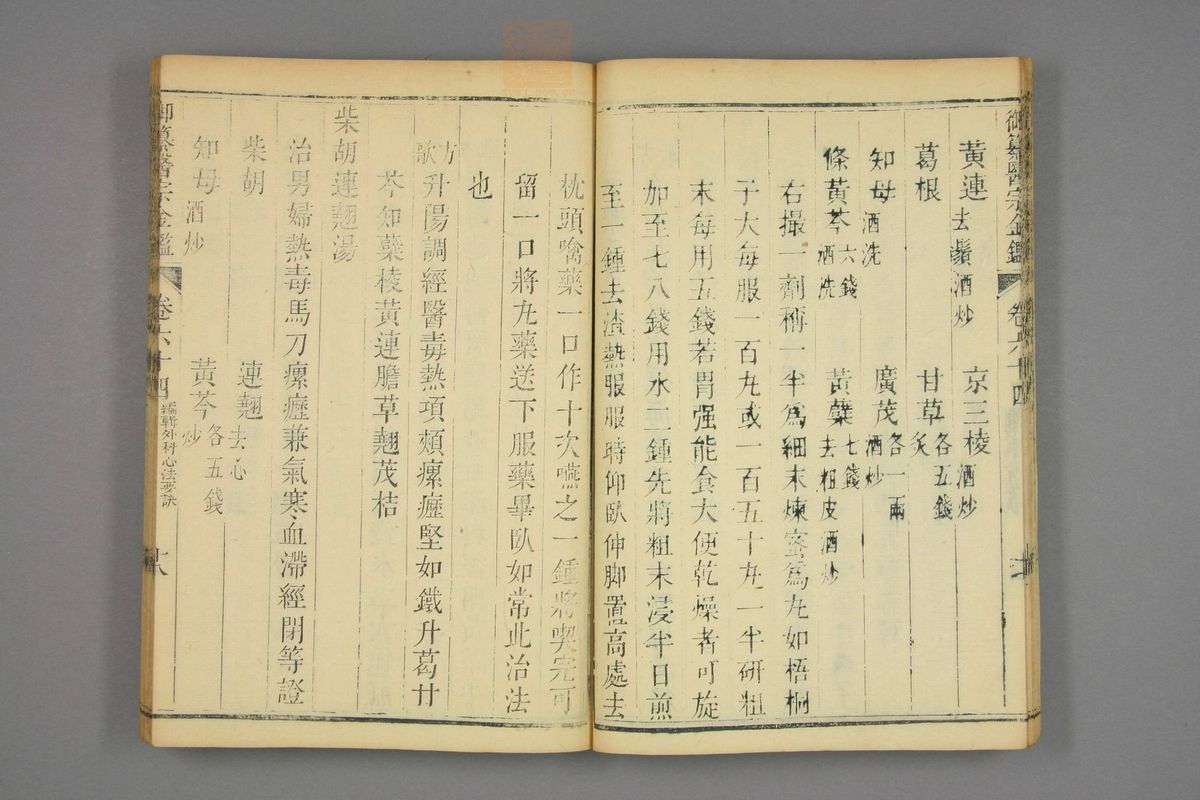 御纂醫宗金鑑 卷六十四
黃連去鬚酒炒 京三棱酒炒
葛根 甘草炙各五錢
知母酒洗 廣茂酒炒各一兩
條黃芩酒洗六錢 黃蘗去粗皮酒炒七錢
右撮一劑稱一半爲細末煉蜜爲丸如梧桐
子大每服一百丸或一百五十丸一半研粗
末每用五錢若胃强能食大便乾燥者可旋
加至七八錢用水二鍾先將粗末浸半日煎
至一鍾去渣熱服服時仰臥伸脚置高處去
枕頭噙藥一口作十次嚥之一鍾將喫完可
留一口將丸藥送下服藥畢臥如常此治法
也
方歌升陽調經醫毒熱項頰瘰癧堅如鐵升葛甘
芩知蘗棱黃連膽草翹茂桔
柴胡連翹湯
治男婦熱毒馬刀瘰癧兼氣寒血滯經閉等證
柴胡 連翹去心
知母酒炒 黃芩炒各五錢
御纂醫宗金鑑 卷六十四 編輯外科心法要訣 十八